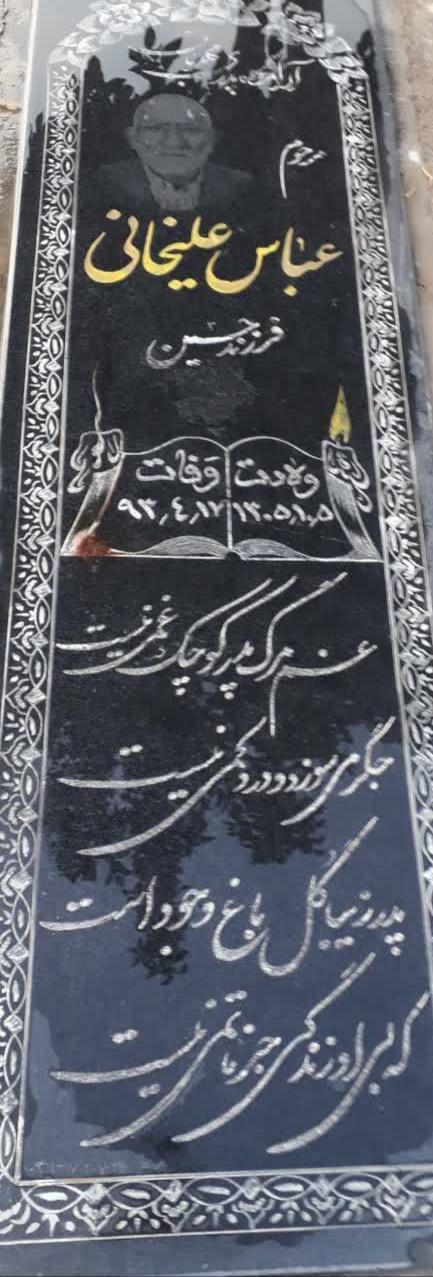 آرامگاه پدر
مرحوم
عباس علیخانی
فرزند حسین
ولادت وفات
۱۳۰۵٫۱٫۵ ۹۳٫۴٫۱۷
غم مرگ پدر کوچک غمی نیست
جگر می سوزد و درد کمی نیست
پدر زیبا گل باغ وجود است
که بی او زندگی جز ماتمی نیست